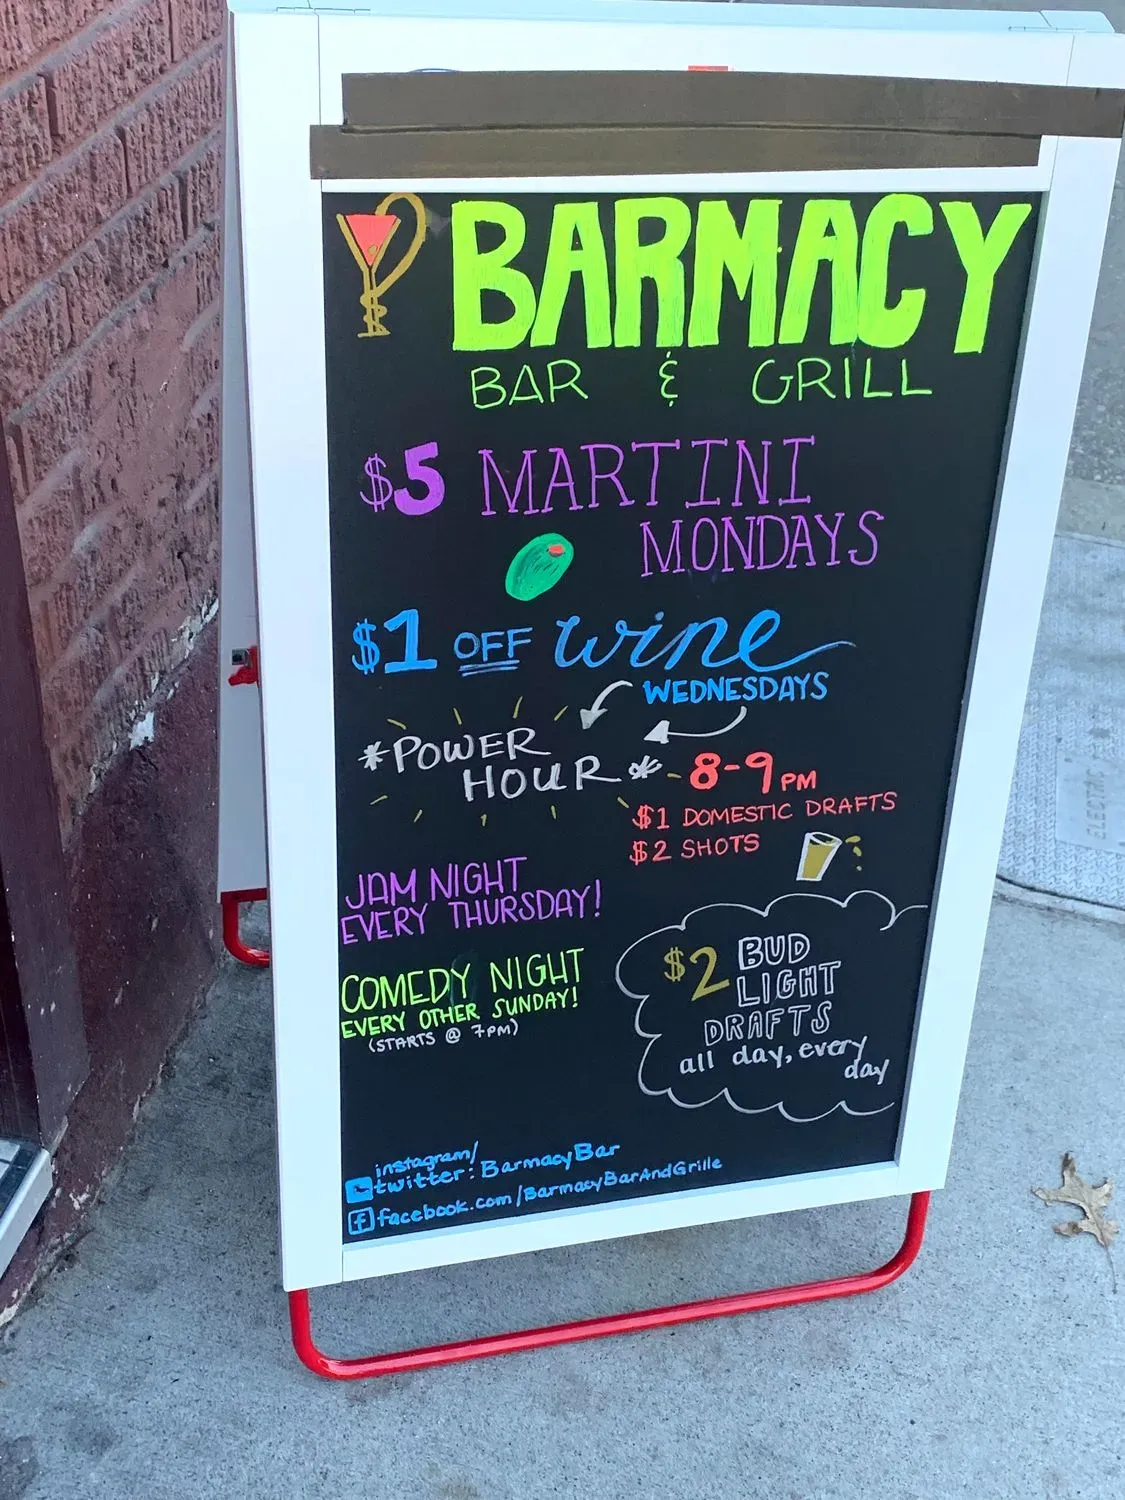 BARMACY
BAR & GRILL
$5 MARTINI
MONDAYS
$1 OFF wine
WEDNESDAYS
*POWER
HOUR* - 8-9 PM
$1 DOMESTIC DRAFTS
$2 SHOTS
JAM NIGHT
EVERY THURSDAY!
COMEDY NIGHT
EVERY OTHER SUNDAY!
(STARTS @ 7PM)
$2 BUD
LIGHT
DRAFTS
all day, every
day
instagram/
twitter: BarmacyBar
f facebook.com/BarmacyBarAndGrille
ELECTRIC